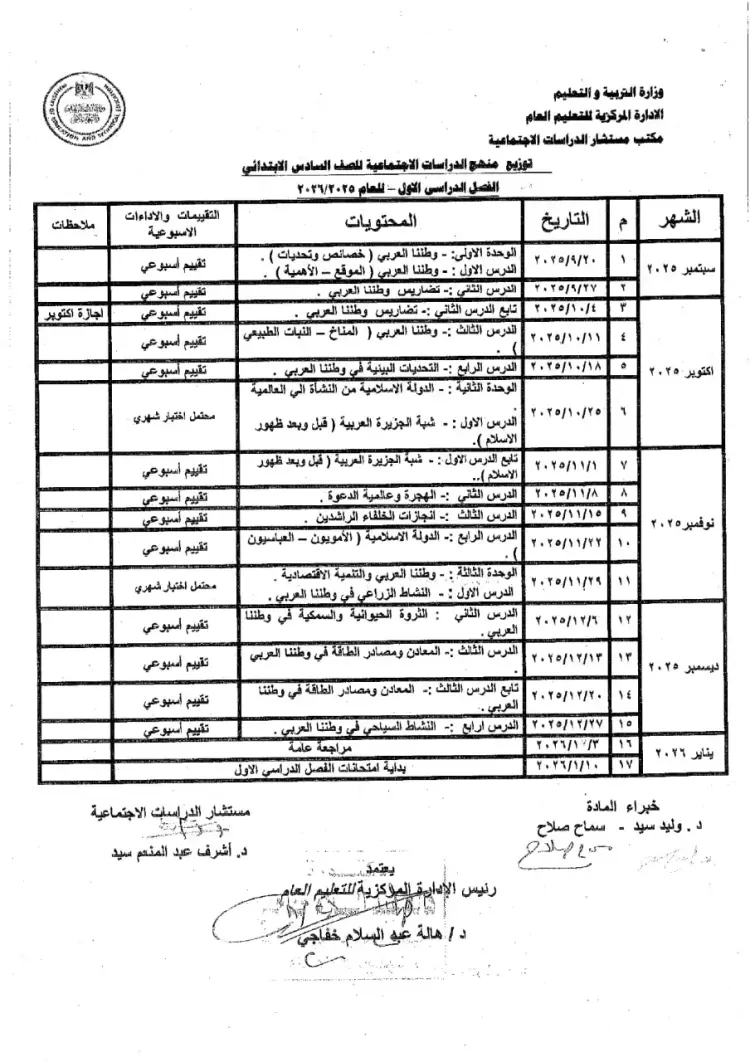 وزارة التربية و التعليم
الادارة المركزية للتعليم العام
مكتب مستشار الدراسات الاجتماعية
توزيع منهج الدراسات الاجتماعية للصف السادس الابتدائي
الفصل الدراسي الاول – للعام ٢٠٢٦/٢٠٢٥
الشهر م التاريخ المحتويات التقييمات والاداءات الاسبوعية ملاحظات
سبتمبر ٢٠٢٥
١ ٢٠٢٥/٩/٢٠ الوحدة الاولى: - وطننا العربي ( خصائص وتحديات ) .
الدرس الاول : - وطننا العربي ( الموقع – الأهمية ) . تقييم أسبوعي
٢ ٢٠٢٥/٩/٢٧ الدرس الثاني :- تضاريس وطننا العربي . تقييم أسبوعي
اكتوبر ٢٠٢٥
٣ ٢٠٢٥/١٠/٤ تابع الدرس الثاني :- تضاريس وطننا العربي . تقييم أسبوعي اجازة اكتوبر
٤ ٢٠٢٥/١٠/١١ الدرس الثالث :- وطننا العربي ( المناخ – النبات الطبيعي
) . تقييم أسبوعي
٥ ٢٠٢٥/١٠/١٨ الدرس الرابع :- التحديات البيئية في وطننا العربي . تقييم أسبوعي
٦ ٢٠٢٥/١٠/٢٥ الوحدة الثانية : - الدولة الاسلامية من النشأة الي العالمية
.
الدرس الاول : - شبة الجزيرة العربية ( قبل وبعد ظهور
الاسلام ). محتمل اختبار شهري
نوفمبر ٢٠٢٥
٧ ٢٠٢٥/١١/١ تابع الدرس الاول : - شبة الجزيرة العربية ( قبل وبعد ظهور
الاسلام ).. تقييم أسبوعي
٨ ٢٠٢٥/١١/٨ الدرس الثاني :- الهجرة وعالمية الدعوة . تقييم أسبوعي
٩ ٢٠٢٥/١١/١٥ الدرس الثالث :- انجازات الخلفاء الراشدين . تقييم أسبوعي
١٠ ٢٠٢٥/١١/٢٢ الدرس الرابع :- الدولة الاسلامية ( الأمويون – العباسيون
) . تقييم أسبوعي
١١ ٢٠٢٥/١١/٢٩ الوحدة الثالثة :- وطننا العربي والتنمية الاقتصادية .
الدرس الاول : - النشاط الزراعي في وطننا العربي . محتمل اختبار شهري
ديسمبر ٢٠٢٥
١٢ ٢٠٢٥/١٢/٦ الدرس الثاني : الثروة الحيوانية والسمكية في وطننا
العربي . تقييم أسبوعي
١٣ ٢٠٢٥/١٢/١٣ الدرس الثالث :- المعادن ومصادر الطاقة في وطننا العربي
. تقييم أسبوعي
١٤ ٢٠٢٥/١٢/٢٠ تابع الدرس الثالث :- المعادن ومصادر الطاقة في وطننا
العربي . تقييم أسبوعي
١٥ ٢٠٢٥/١٢/٢٧ الدرس ارابع :- النشاط السياحي في وطننا العربي . تقييم أسبوعي
يناير ٢٠٢٦
١٦ ٢٠٢٦/١/٣ مراجعة عامة
١٧ ٢٠٢٦/١/١٠ بداية امتحانات الفصل الدراسي الاول
خبراء المادة
د . وليد سيد - سماح صلاح
مستشار الدراسات الاجتماعية
د. أشرف عبد المنعم سيد
يعتمد
رئيس الإدارة المركزية للتعليم العام
د / هالة عبد السلام خفاجي